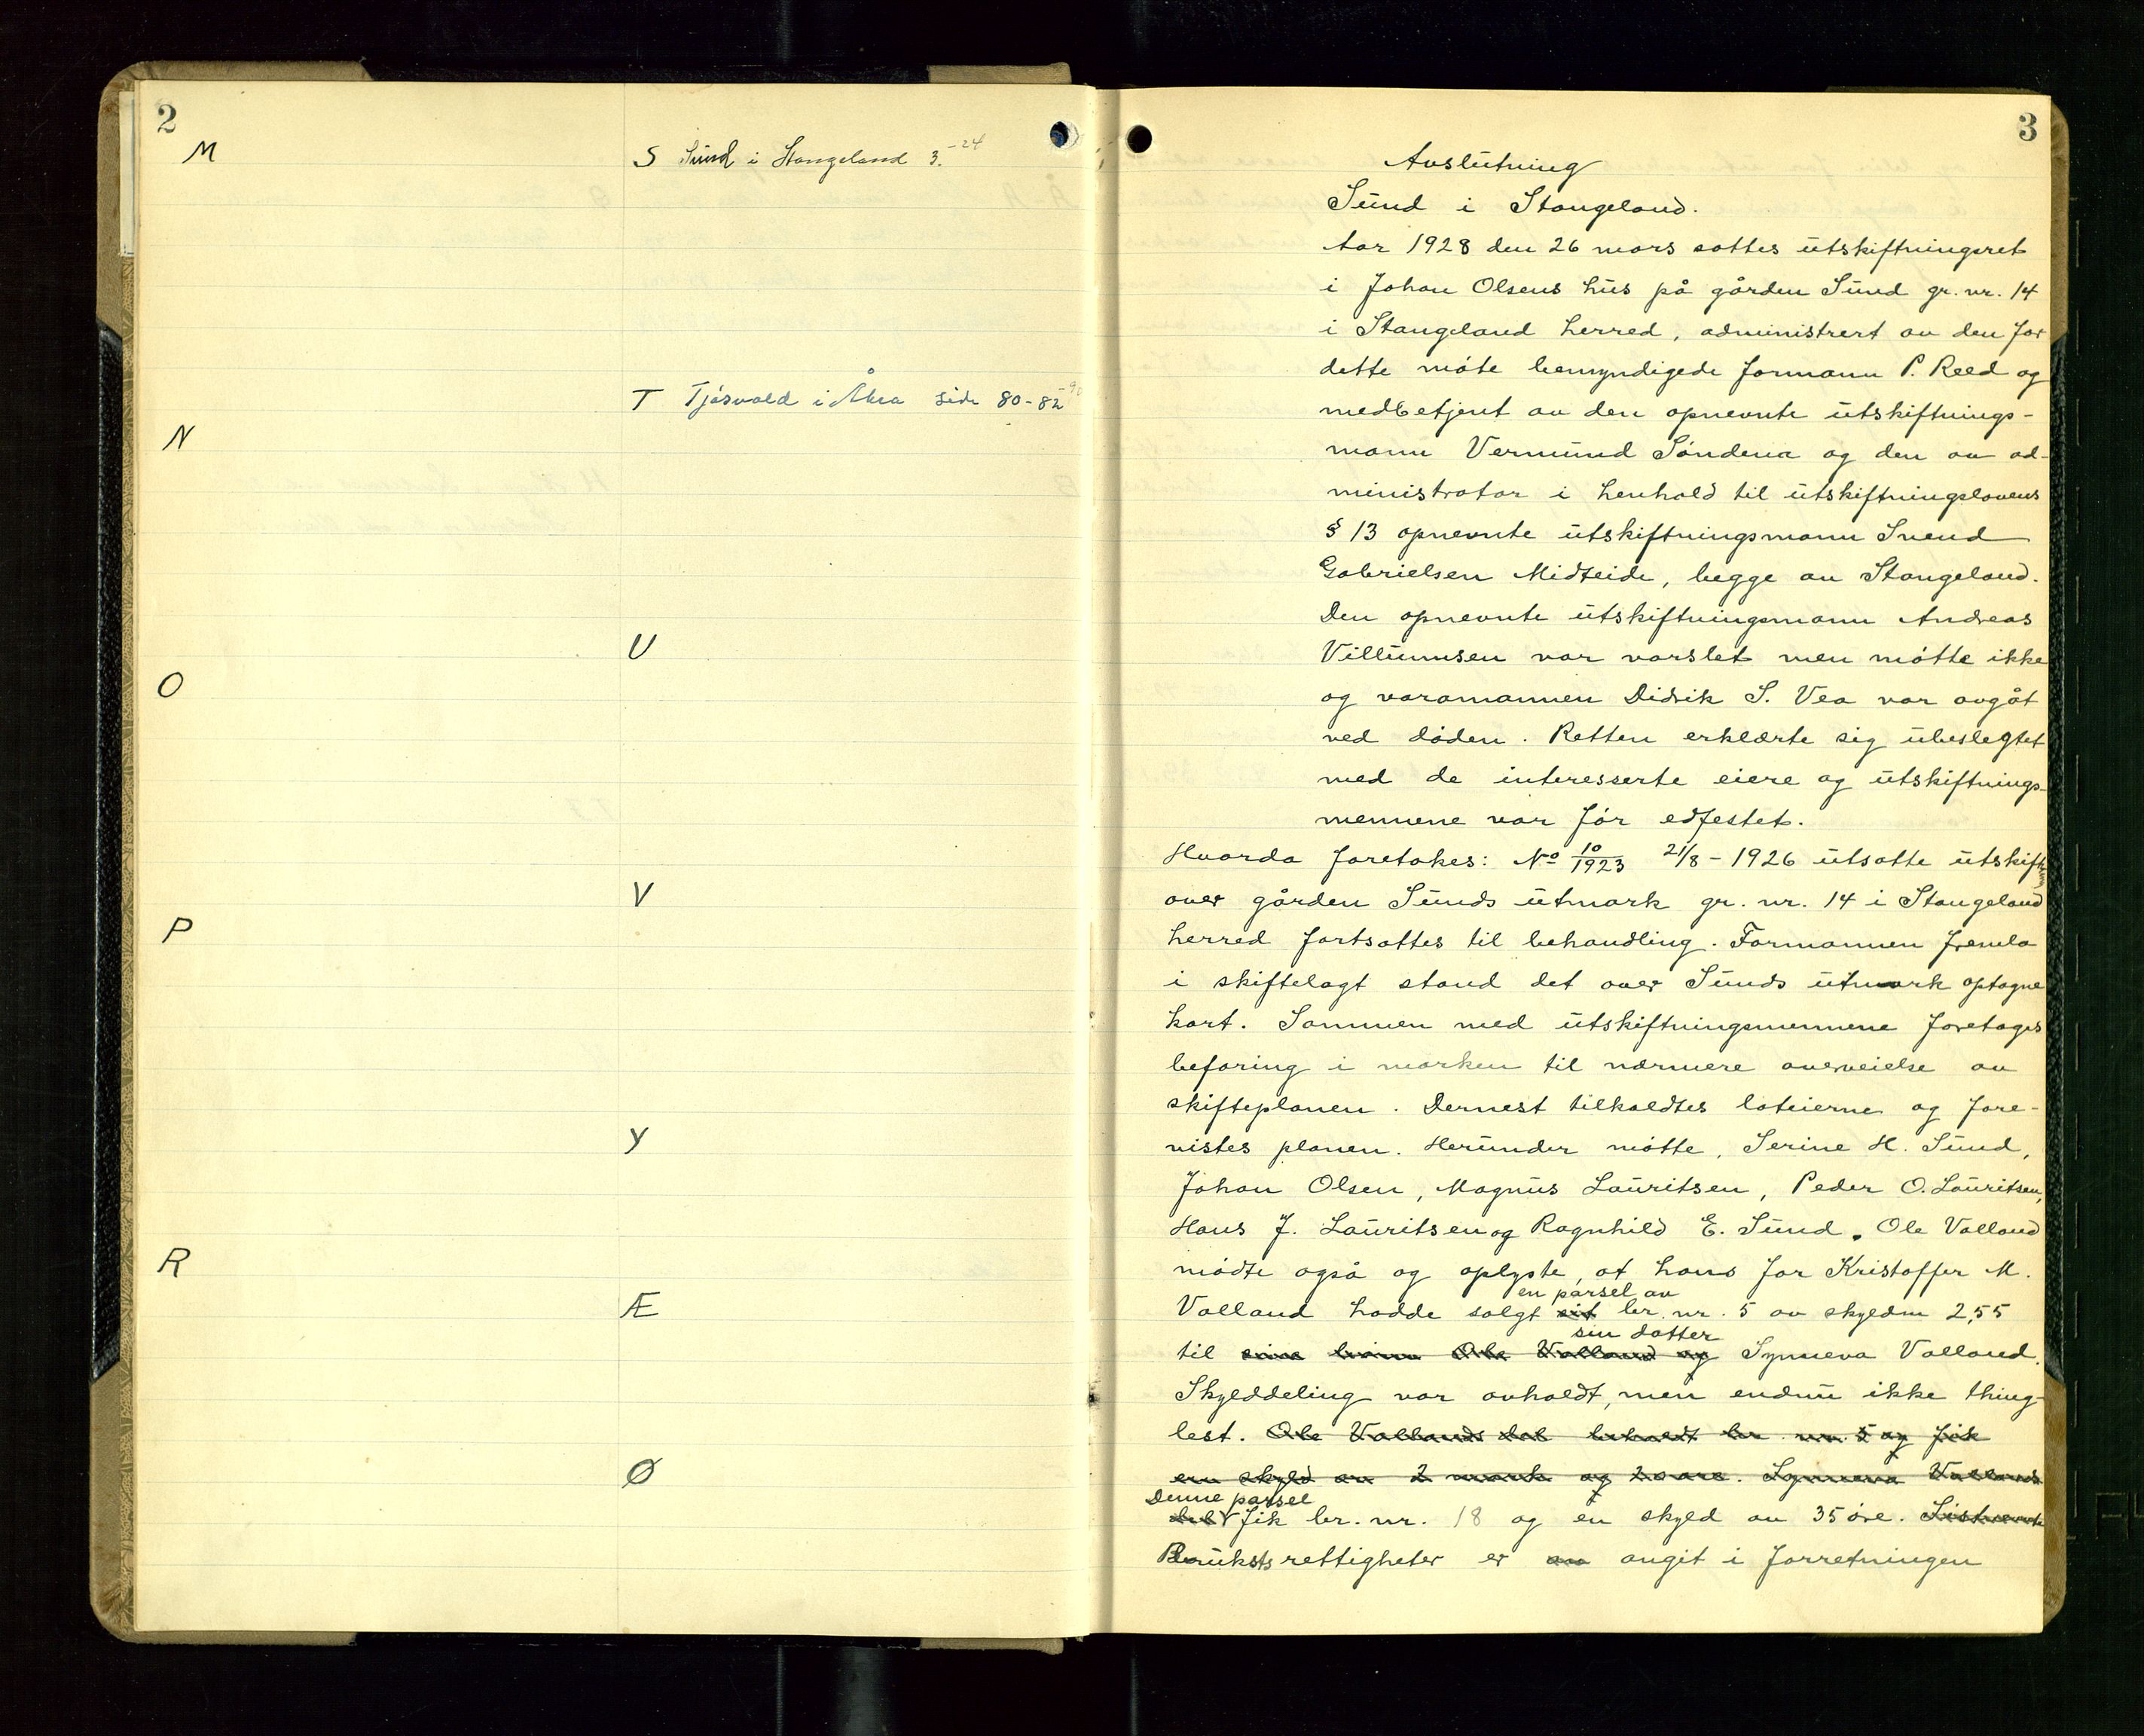 2
M
N
O
P
R
S Sund i Stangeland 3.-24
T Tjøsvold i Åkra side 80-82
U
V
Y
Æ
Ø
3
Avslutning
Sund i Stangeland.
Aar 1928 den 26 mars sattes utskiftningsret
i Johan Olsens hus på gården Sund gr. nr. 14
i Stangeland herred, administrert av den for
dette møte bemyndigede formann P. Reed og
medbetjent av den opnevnte utskiftnings-
mann Vermund Søndena og den av ad-
ministrator i henhold til utskiftningslovens
§ 13 opnevnte utskiftningsmann Svend
Gabrielsen Midteide, begge av Stangeland.
Den opnevnte utskiftningsmann Andreas
Villumsen var varslet men møtte ikke
og varamannen Didrik S. Vea var avgåt
ved døden. Retten erklærte sig ubeslegtet
med de interesserte eiere og utskiftnings-
mennene var før edfestet.
Hvorda foretakes: No 10/1923 21/8-1926 utsatte utskiftn
over gården Sunds utmark gr. nr. 14 i Stangeland
herred fortsattes til behandling. Formannen fremla
i skiftelagt stand det over Sunds utmark optagne
kart. Sammen med utskiftningsmennene foretages
befaring i marken til nærmere overveielse av
skifteplanen. Dernest tilkaldtes loteierne og fore-
vistes planen. Herunder møtte, Serine H. Sund,
Johan Olsen, Magnus Lauritsen, Peder O. Lauritsen,
Hans J. Lauritsen og Ragnhild E. Sund. Ole Valland
mødte også og oplyste, at hans far Kristoffer M.
en parsel av
Valland hadde solgt sit br. nr. 5 av skyldm 2,55
sin datter
til sine barn Ole Valland og Synneva Valland.
Skylddeling var avholdt, men endnu ikke thing-
lest. Ole Vallands del beholdt br. nr. 5 og fik
en skyld av 2 mark og 20 øre. Synneva Vallands
Denne parsel
del fik br. nr. 18 og en skyld av 35 øre.
Bruksrettigheter er av angit i forretningen